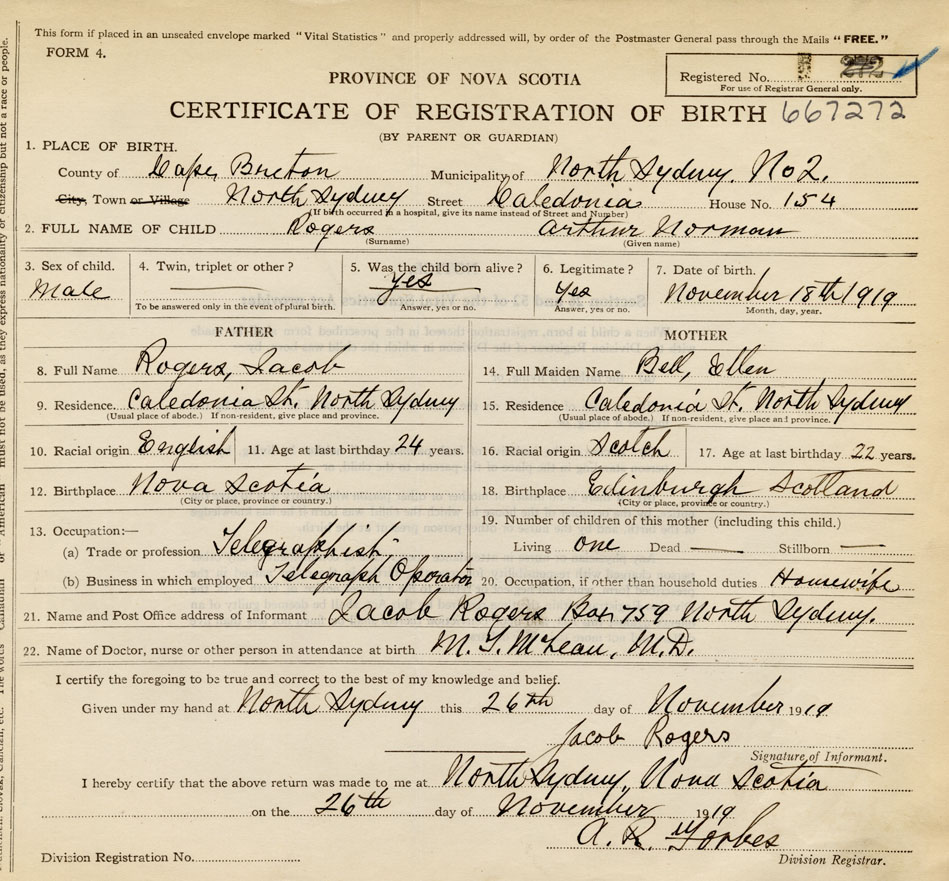 This form if placed in an unsealed envelope marked "Vital Statistics" and properly addressed will, by order of the Postmaster General pass through the Mails "FREE."
FORM 4.
Registered No. 272
For use of Registrar General only.
PROVINCE OF NOVA SCOTIA
CERTIFICATE OF REGISTRATION OF BIRTH 667272
(BY PARENT OR GUARDIAN)
1. PLACE OF BIRTH.
County of Cape Breton Municipality of North Sydney. No 2.
City, Town or Village North Sydney Street Caledonia House No. 154
(If birth occurred in a hospital, give its name instead of Street and Number)
2. FULL NAME OF CHILD Rogers Arthur Norman
(Surname) (Given name)
3. Sex of child. 4. Twin, triplet or other? 5. Was the child born alive? 6. Legitimate? 7. Date of birth.
Male yes Yes November 18th 1919
To be answered only in the event of plural birth. Answer, yes or no. Answer, yes or no. Month, day, year.
FATHER MOTHER
8. Full Name Rogers, Jacob 14. Full Maiden Name Bell, Ellen
9. Residence. Caledonia St. North Sydney 15. Residence Caledonia St. North Sydney
(Usual place of abode.) If non-resident, give place and province. (Usual place of abode.) If non-resident, give place and province.
10. Racial origin English 11. Age at last birthday 24 years. 16. Racial origin Scotch 17. Age at last birthday 22 years.
12. Birthplace Nova Scotia 18. Birthplace Edinburgh Scotland
(City or place, province or country.) (City or place, province or country.)
13. Occupation:— 19. Number of children of this mother (including this child.)
(a) Trade or profession Telegraphist Living one Dead — Stillborn —
(b) Business in which employed Telegraph Operator 20. Occupation, if other than household duties Housewife
21. Name and Post Office address of Informant Jacob Rogers Box 759 North Sydney.
22. Name of Doctor, nurse or other person in attendance at birth M. T. McLean, M.D.
I certify the foregoing to be true and correct to the best of my knowledge and belief.
Given under my hand at North Sydney this 26th day of November 1919
Jacob Rogers
Signature of Informant.
I hereby certify that the above return was made to me at North Sydney, Nova Scotia
on the 26th day of November 1919
A. R. Forbes
Division Registration No. Division Registrar.